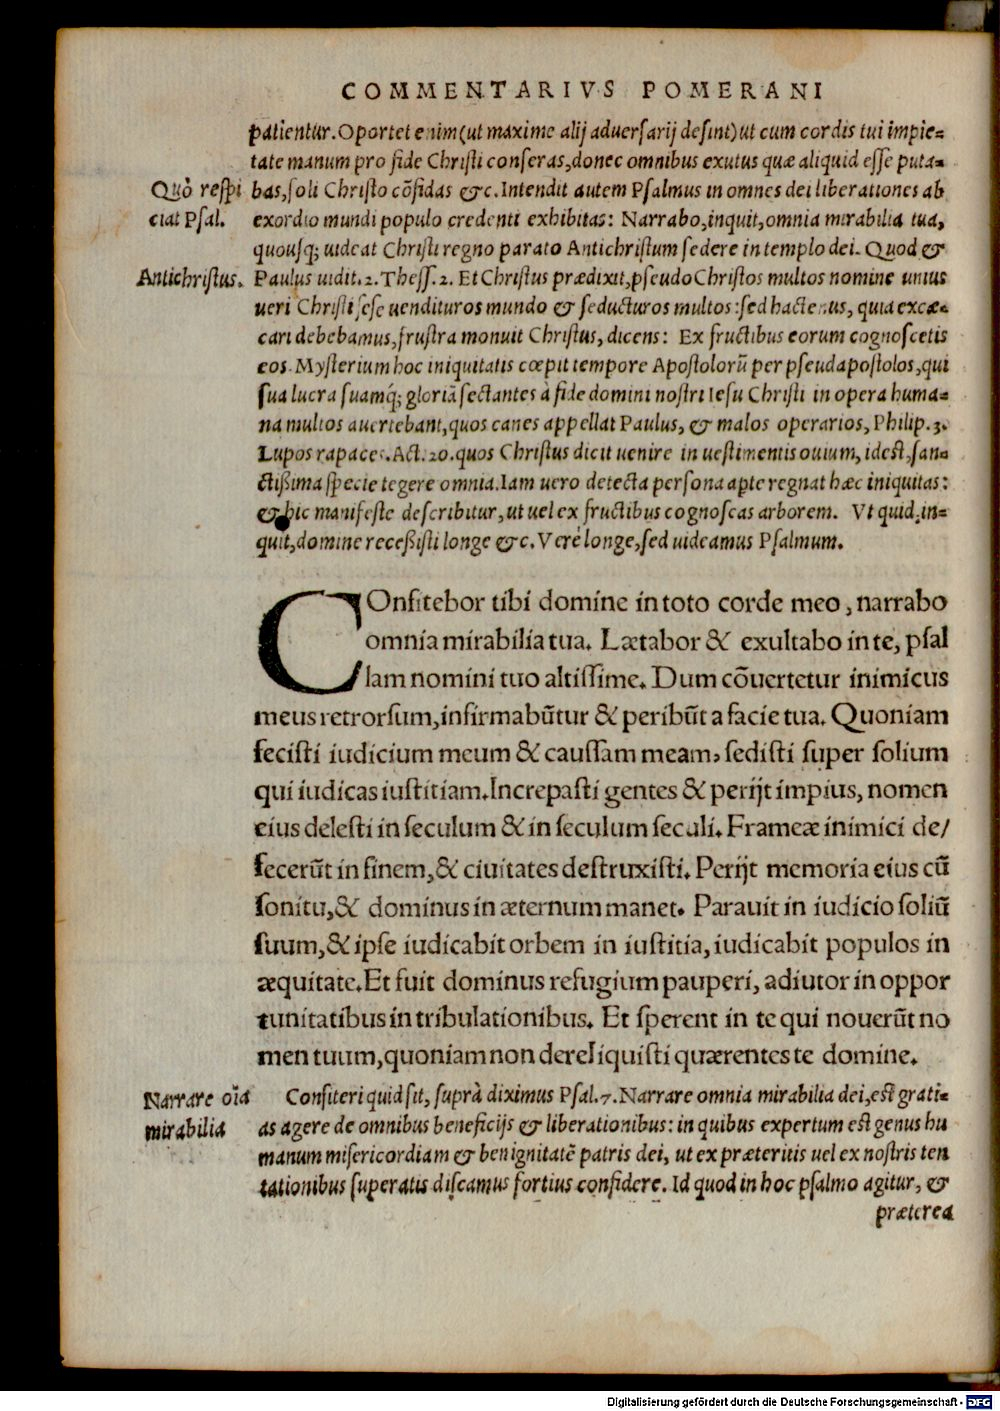 COMMENTARIVS POMERANI
patientur. Oportet enim (ut maxime alij adversarij desint) ut cum cordis tui impie=
tate manum pro fide Christi conseras, donec omnibus exutus quæ aliquid esse puta=
Quò respi
bas, soli Christo cõfidas &c. Intendit autem Psalmus in omnes dei liberationes ab
ciat Psal.
exordio mundi populo credenti exhibitas: Narrabo, inquit, omnia mirabilia tua,
quousq; uideat Christi regno parato Antichristum sedere in templo dei. Quod &
Antichristus.
Paulus uidit. 2. Thess. 2. Et Christus prædixit, pseudo Christos multos nomine unius
ueri Christi sese uendituros mundo & seducturos multos: sed hactenus, quia excæ=
cari debebamus, frustra monuit Christus, dicens: Ex fructibus eorum cognoscetis
eos. Mysterium hoc iniquitatis cœpit tempore Apostolorũ per pseudapostolos, qui
sua lucra suamq́; gloriã sectantes à fide domini nostri Iesu Christi in opera huma=
na multos auertebant, quos canes appellat Paulus, & malos operarios, Philip. 3.
Lupos rapaces. Act. 20. quos Christus dicit uenire in uestimentis ouium, id est, san=
ctißima specie tegere omnia. Iam uero detecta persona apte regnat hæc iniquitas:
& hic manifeste describitur, ut uel ex fructibus cognoscas arborem. Vt quid, in=
quit, domine receßisti longe &c. Verè longe, sed uideamus Psalmum.
COnfitebor tibi domine in toto corde meo, narrabo
omnia mirabilia tua. Lætabor & exultabo in te, psal
lam nomini tuo altissime. Dum cõuertetur inimicus
meus retrorsum, infirmabũtur & peribũt a facie tua. Quoniam
fecisti iudicium meum & caussam meam, sedisti super solium
qui iudicas iustitiam. Increpasti gentes & perijt impius, nomen
eius delesti in seculum & in seculum seculi. Frameæ inimici de/
fecerũt in finem, & ciuitates destruxisti. Perijt memoria eius cũ
sonitu, & dominus in æternum manet. Parauit in iudicio soliũ
suum, & ipse iudicabit orbem in iustitia, iudicabit populos in
æquitate. Et fuit dominus refugium pauperi, adiutor in oppor
tunitatibus in tribulationibus. Et sperent in te qui nouerũt no
men tuum, quoniam non dereliquisti quærentes te domine.
Narrare oĩa
Confiteri quid sit, suprà diximus Psal. 7. Narrare omnia mirabilia dei, est grati=
mirabilia
as agere de omnibus beneficijs & liberationibus: in quibus expertum est genus hu
manum misericordiam & benignitatẽ patris dei, ut ex præteritis uel ex nostris ten
tationibus superatis discamus fortius confidere. Id quod in hoc psalmo agitur, &
præterea
Digitalisierung gefördert durch die Deutsche Forschungsgemeinschaft - DFG